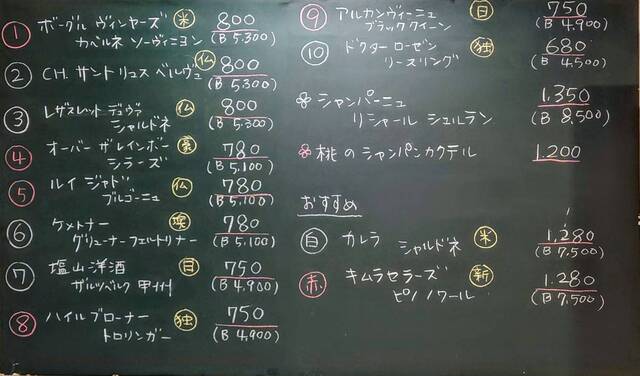 ① ボーグル ヴィンヤーズ 米 800
カベルネ ソーヴィニヨン (B 5,300)
② CH. サントリュス ベルヴュ 仏 800
(B 5,300)
③ レザスレット デュヴァ 仏 800
シャルドネ (B 5,300)
④ オーバー ザ レインボー 豪 780
シラーズ (B 5,100)
⑤ ルイ ジャド 仏 780
ブルゴーニュ (B 5,100)
⑥ ケメトナー 780
グリューナーフェルトリナー (B 5,100)
⑦ 塩山洋酒 日 750
ザルツベルク 甲州 (B 4,900)
⑧ ハイルブローナー 独 750
トロリンガー (B 4,900)
⑨ アルカンヴィーニュ 日 750
ブラッククイーン (B 4,900)
⑩ ドクターローゼン 独 680
リースリング (B 4,500)
シャンパーニュ 1,350
リシャール シュルラン (B 8,500)
桃のシャンパンカクテル 1.200
おすすめ
白 カレラ 米 1,280
シャルドネ (B 7,500)
赤 キムラセラーズ 新 1.280
ピノ ノワール (B 7,500)